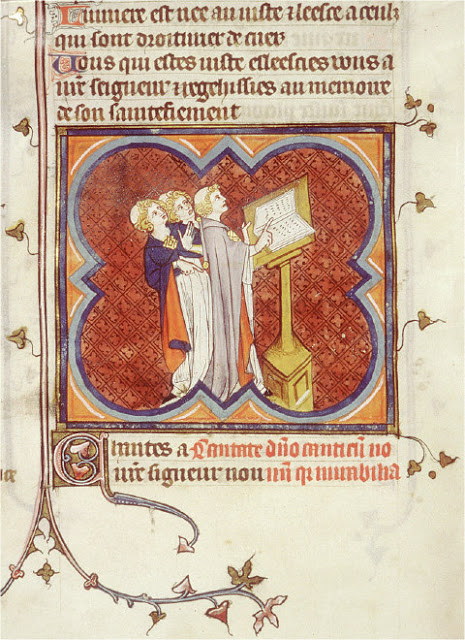 Lumiere est nee au iuste ⁊ leesce a ceulz
qui sont droiturier de cuer
Vous qui estes iuste esleescies vous a
nr̃e seigneur ⁊ regehissies au memoire
de son saintefiement
Chantes a Cantate dño canticũ no
nr̃e signeur nou uũ qr mirabilia